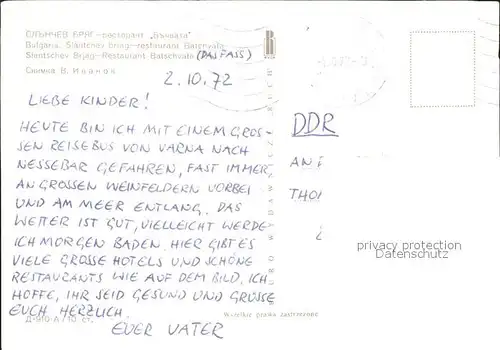 СЛЪНЧЕВ БРЯГ—ресторант „Бъчвата"
Bulgaria. Slantchev Briag—restaurant Batchvata
Slantschev Brjag—Restaurant Batschvata (DAS FASS)
Снимка В. Иванов
2.10.72
LIEBE KINDER!
HEUTE BIN ICH MIT EINEM GROS-
SEN REISEBUS VON VARNA NACH
NESSEBAR GEFAHREN, FAST IMMER
AN GROSSEN WEINFELDERN VORBEI
UND AM MEER ENTLANG. DAS
WETTER IST GUT, VIELLEICHT WERDE
ICH MORGEN BADEN. HIER GIBT ES
VIELE GROSSE HOTELS UND SCHÖNE
RESTAURANTS WIE AUF DEM BILD. ICH
HOFFE, IHR SEID GESUND UND GRÜSSE
EUCH HERZLICH.
EUER VATER
Д-910-А/10 ст.
DDR
AN
THO
privacy protection
Datenschutz
Wszelkie prawa zastrzeżone